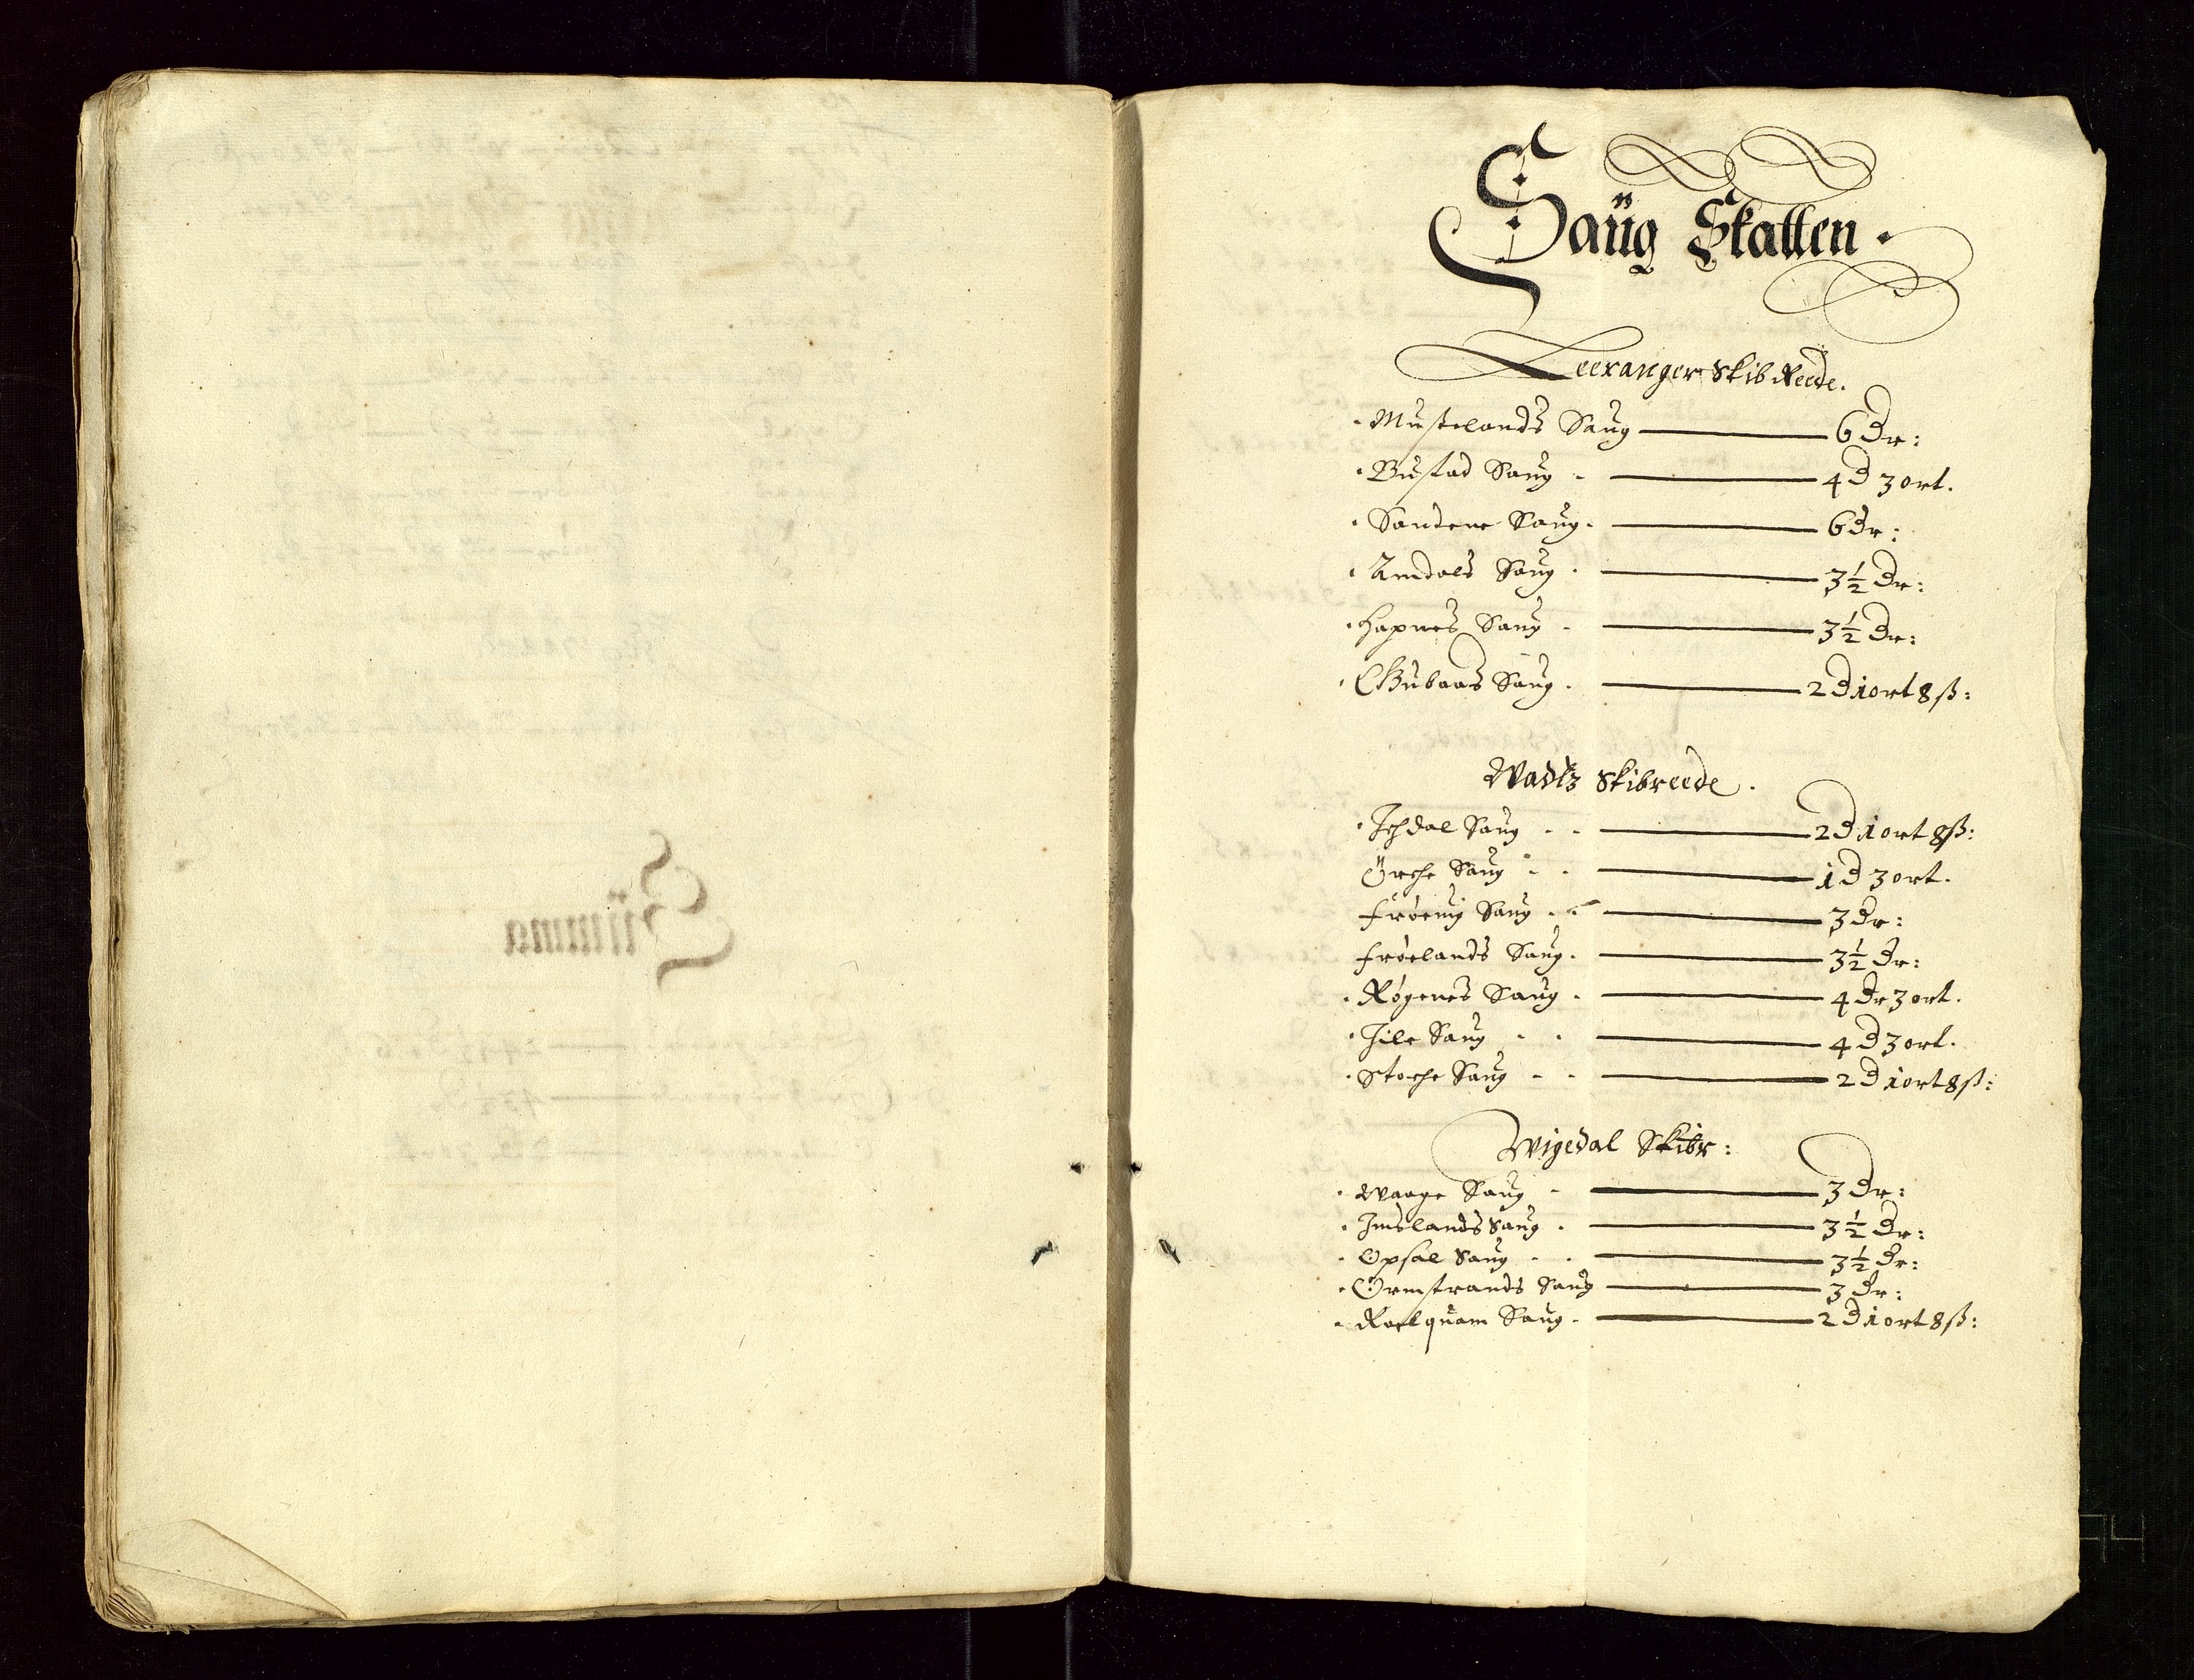 Saüg Skatten.
Leeranger Skib Reede.
Mustelands Saug 6 Dr:
Bustad Saug 4 D 3 ort.
Sandene Saug 6 Dr:
Amdals Saug 3½ Dr:
Hapnes Saug 3½ Dr:
Gubaas Saug 2 D 1 ort 8 ß:
Wadtz Skibreede.
Ichdal Saug 2 D 1 ort 8 ß:
Örche Saug 1 D 3 ort.
Frøeng Saug 3 Dr:
Frøelands Saug 3½ Dr:
Røgenes Saug 4 Dr 3 ort.
Jile Saug 4 D 3 ort.
Stoche Saug 2 D 1 ort 8 ß:
Wigedal Skibr:
Waage Saug 3 Dr:
Imslands Saug 3½ Dr:
Opsal Saug 3½ Dr:
Ormstrands Saug 3 Dr:
Roelquam Saug 2 D 1 ort 8 ß:
Sümma